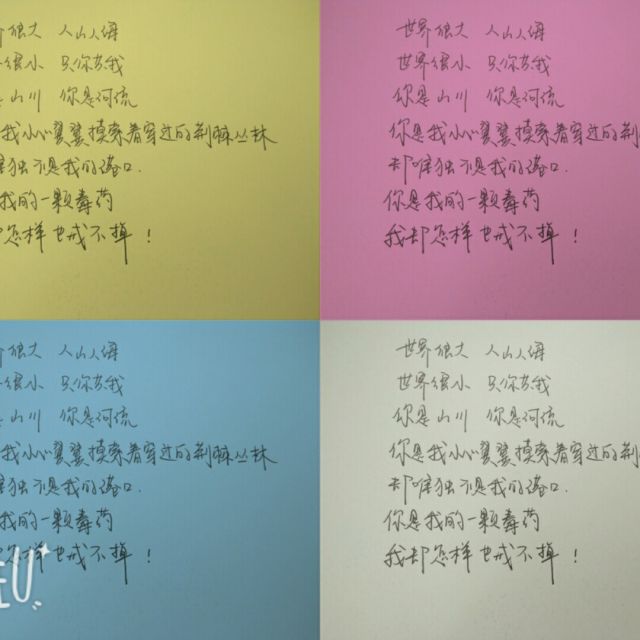 界很大 人山人海
很小 只你与我
是山川 你是河流
我小心翼翼摸索着穿过的荆棘丛林
唯独不是我的港口.
我的一颗毒药
却怎样也戒不掉！
世界很大 人山人海
世界很小 只你与我
你是山川 你是河流
你是我小心翼翼摸索着穿过的荆
却唯独不是我的港口.
你是我的一颗毒药
我却怎样也戒不掉！
界很大 人山人海
很小 只你与我
是山川 你是河流
我小心翼翼摸索着穿过的荆棘丛林
唯独不是我的港口.
我的一颗毒药
怎样也戒不掉！
EU
世界很大 人山人海
世界很小 只你与我
你是山川 你是河流
你是我小心翼翼摸索着穿过的荆
却唯独不是我的港口.
你是我的一颗毒药
我却怎样也戒不掉！